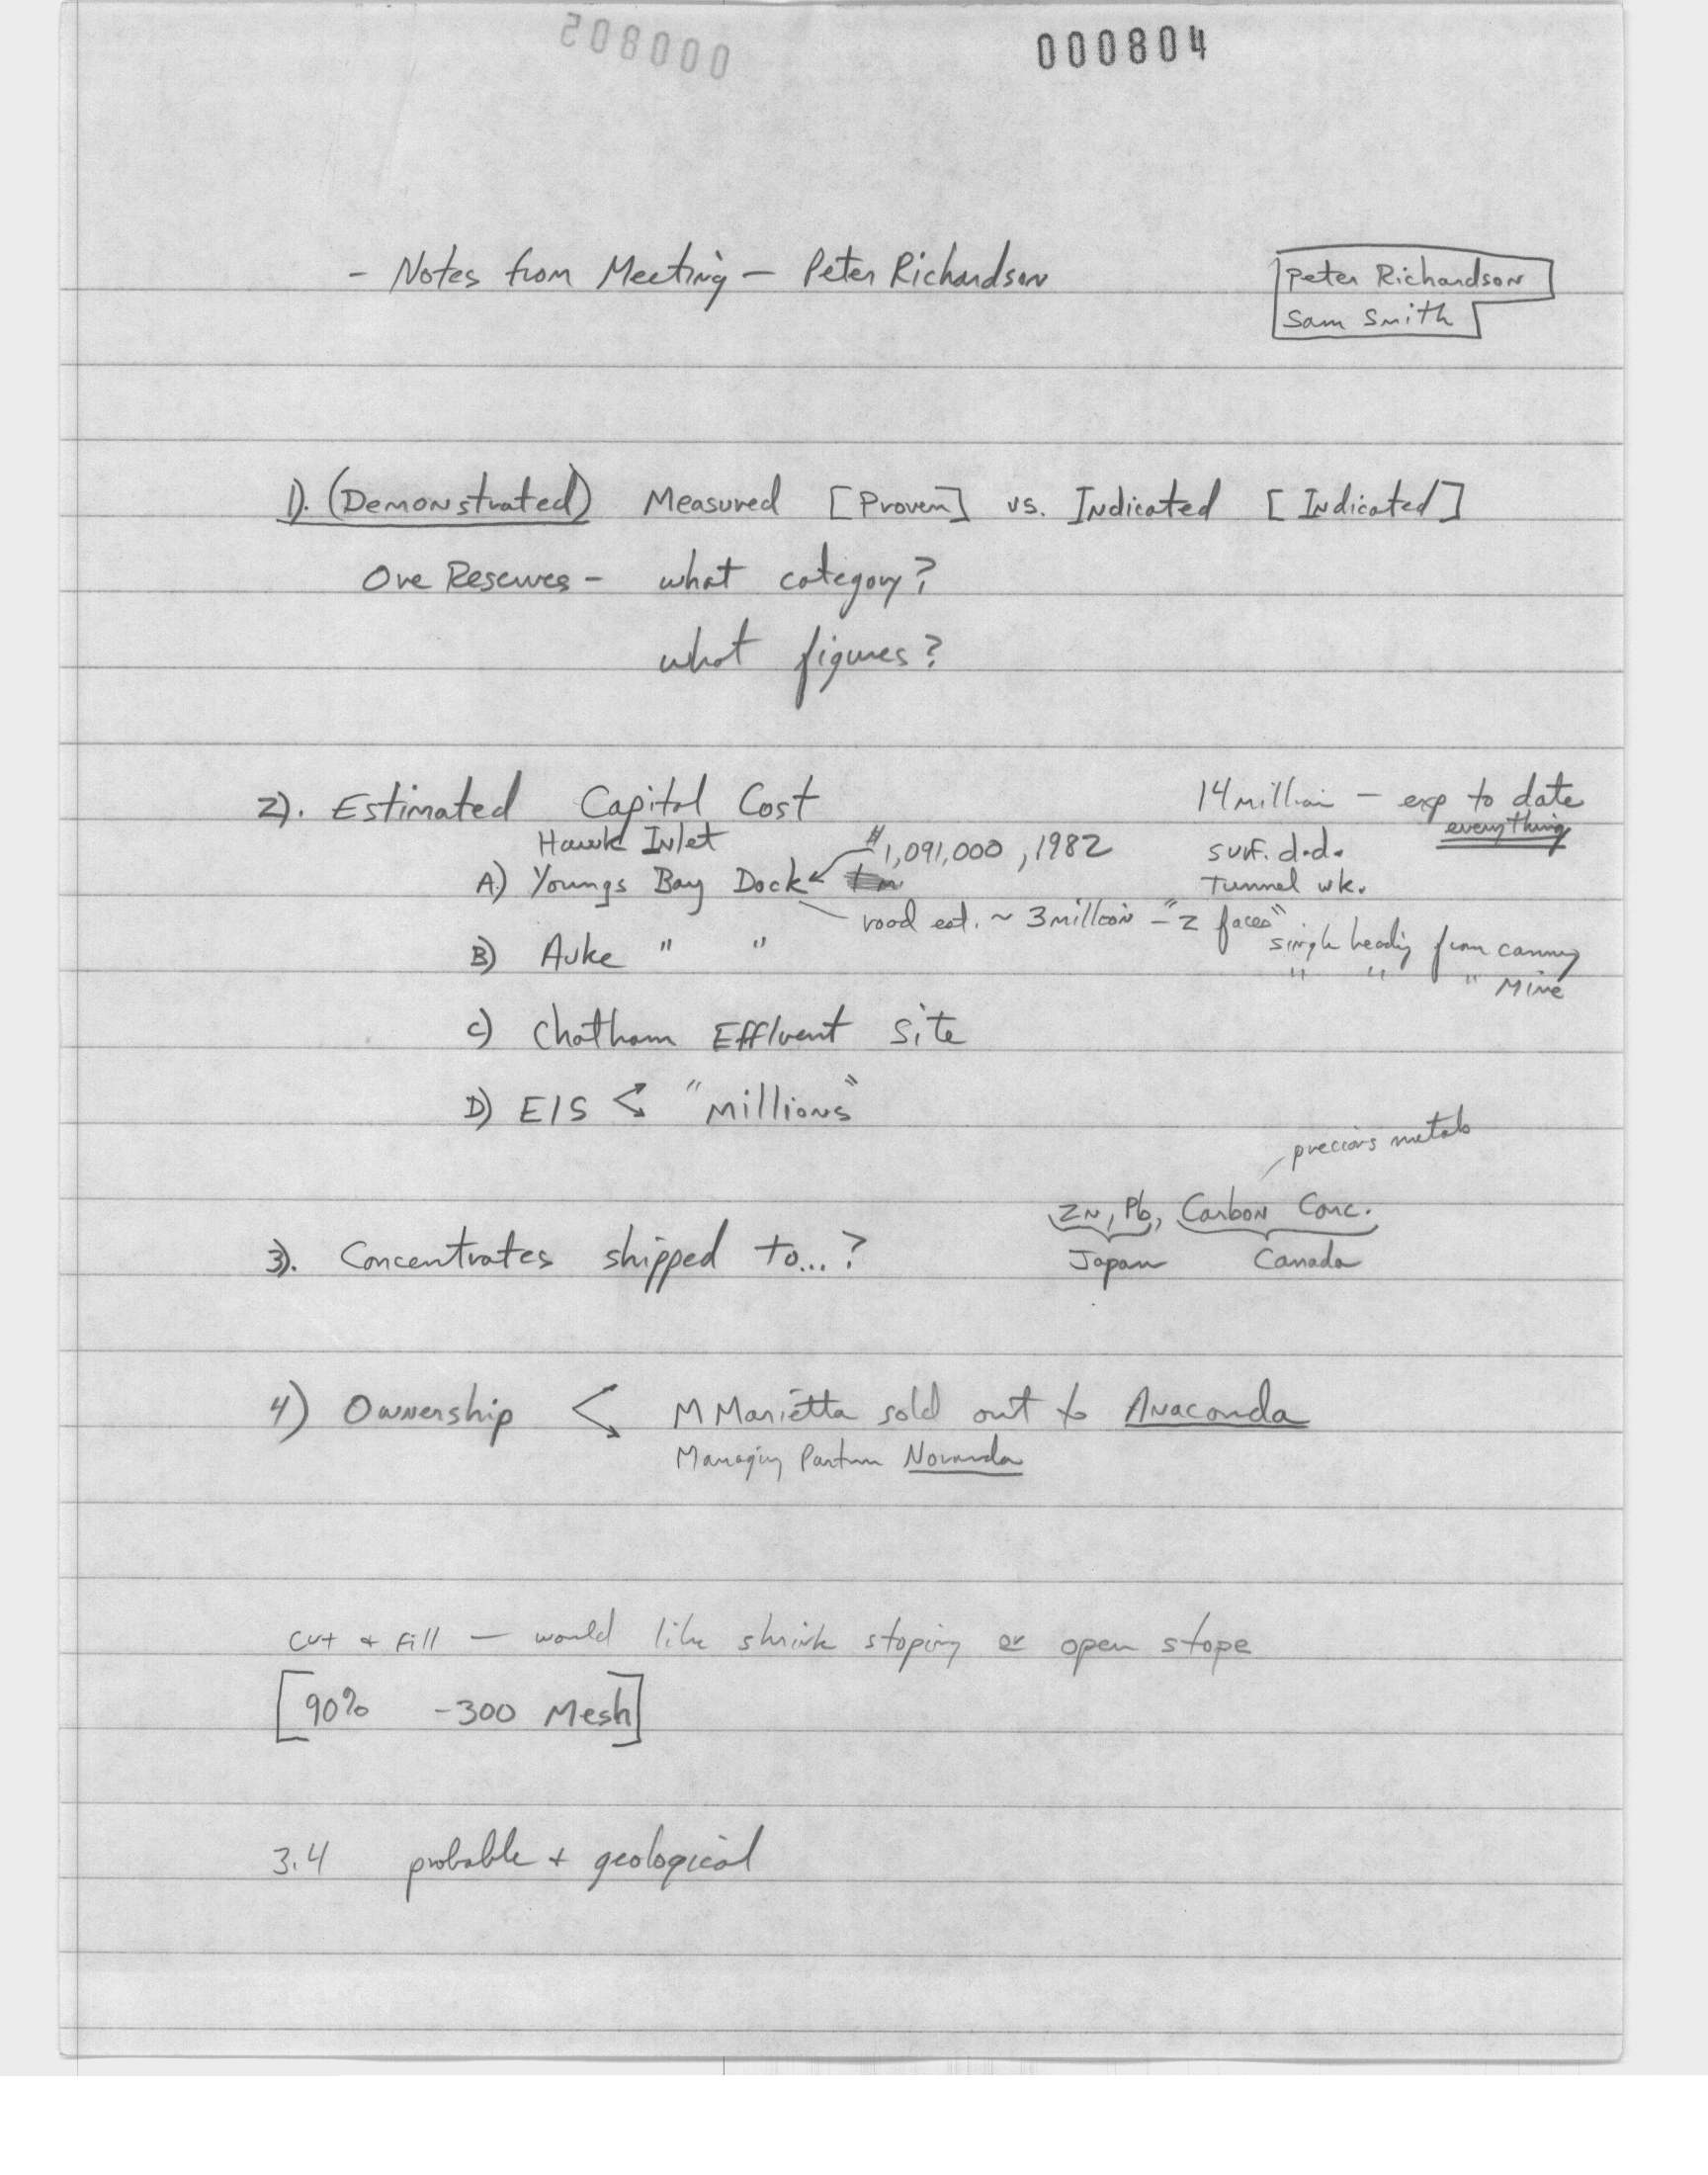 000805
000804
- Notes from Meeting - Peter Richardson
Peter Richardson
Sam Smith
1). (Demonstrated) Measured [Proven] vs. Indicated [Indicated]
Ore Reserves - what category?
what figures?
2). Estimated Capital Cost
14 million - exp to date
everything
Hawk Inlet
$1,091,000, 1982
surf. d.d.
A) Youngs Bay Dock
Tunnel wk.
road est. ~ 3 million - "2 faces"
single heading from cannery
" " " Mine
B) Auke " "
C) Chatham Effluent Site
D) EIS < "Millions"
precious metals
Zn, Pb, Carbon Conc.
3). Concentrates shipped to...?
Japan Canada
4) Ownership < M Marietta sold out to Anaconda
Managing Partner Noranda
cut + fill - would like shrink stoping or open stope
[90% -300 Mesh]
3.4 probable + geological